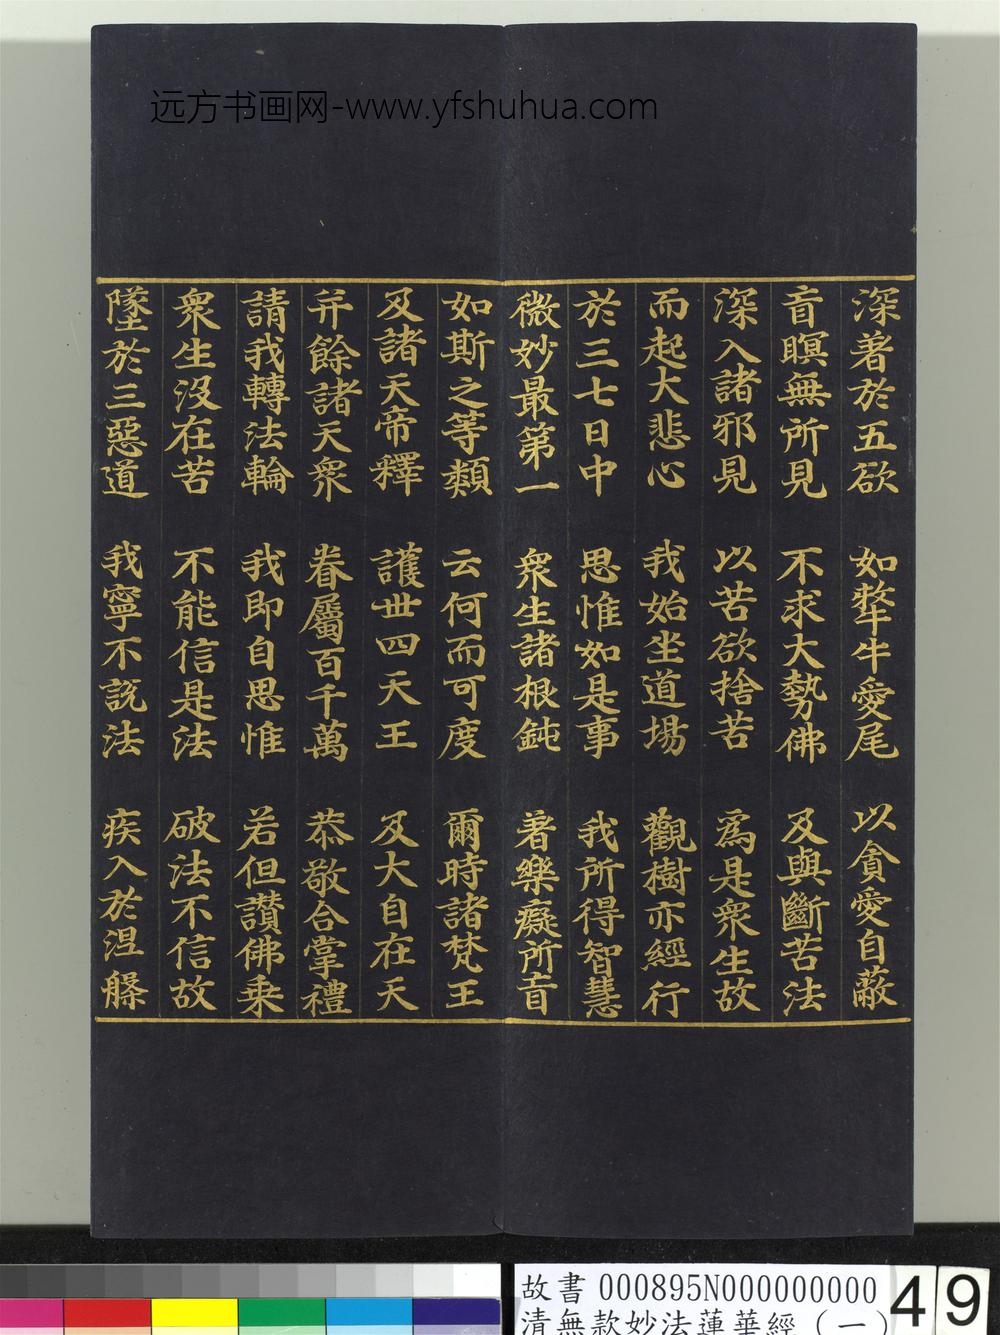 远方书画网-www.yfshuhua.com
深著於五欲 如犛牛愛尾 以貪愛自蔽
盲瞑無所見 不求大勢佛 及與斷苦法
深入諸邪見 以苦欲捨苦 為是衆生故
而起大悲心 我始坐道場 觀樹亦經行
於三七日中 思惟如是事 我所得智慧
微妙最第一 衆生諸根鈍 著樂癡所盲
如斯之等類 云何而可度 爾時諸梵王
及諸天帝釋 護世四天王 及大自在天
并餘諸天衆 眷屬百千萬 恭敬合掌禮
請我轉法輪 我即自思惟 若但讚佛乗
衆生沒在苦 不能信是法 破法不信故
墜於三惡道 我寧不說法 疾入於涅槃
故書 000895N000000000 49
清無款妙法蓮華經（一）